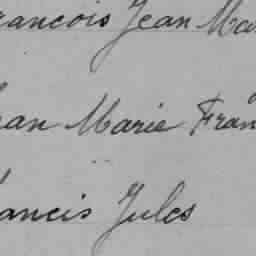 rancois Jean Ma
ean Marie Fran
rancis Jules